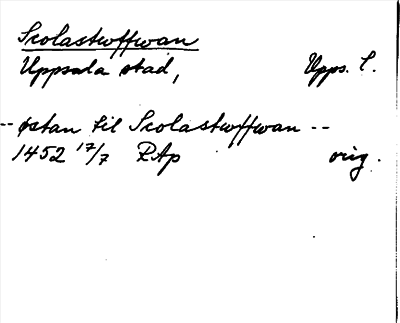 Scolastuffwan
Uppsala stad, Upps. l.
-- østan til Scolastuffwan --
1452 17/7 RAp orig.